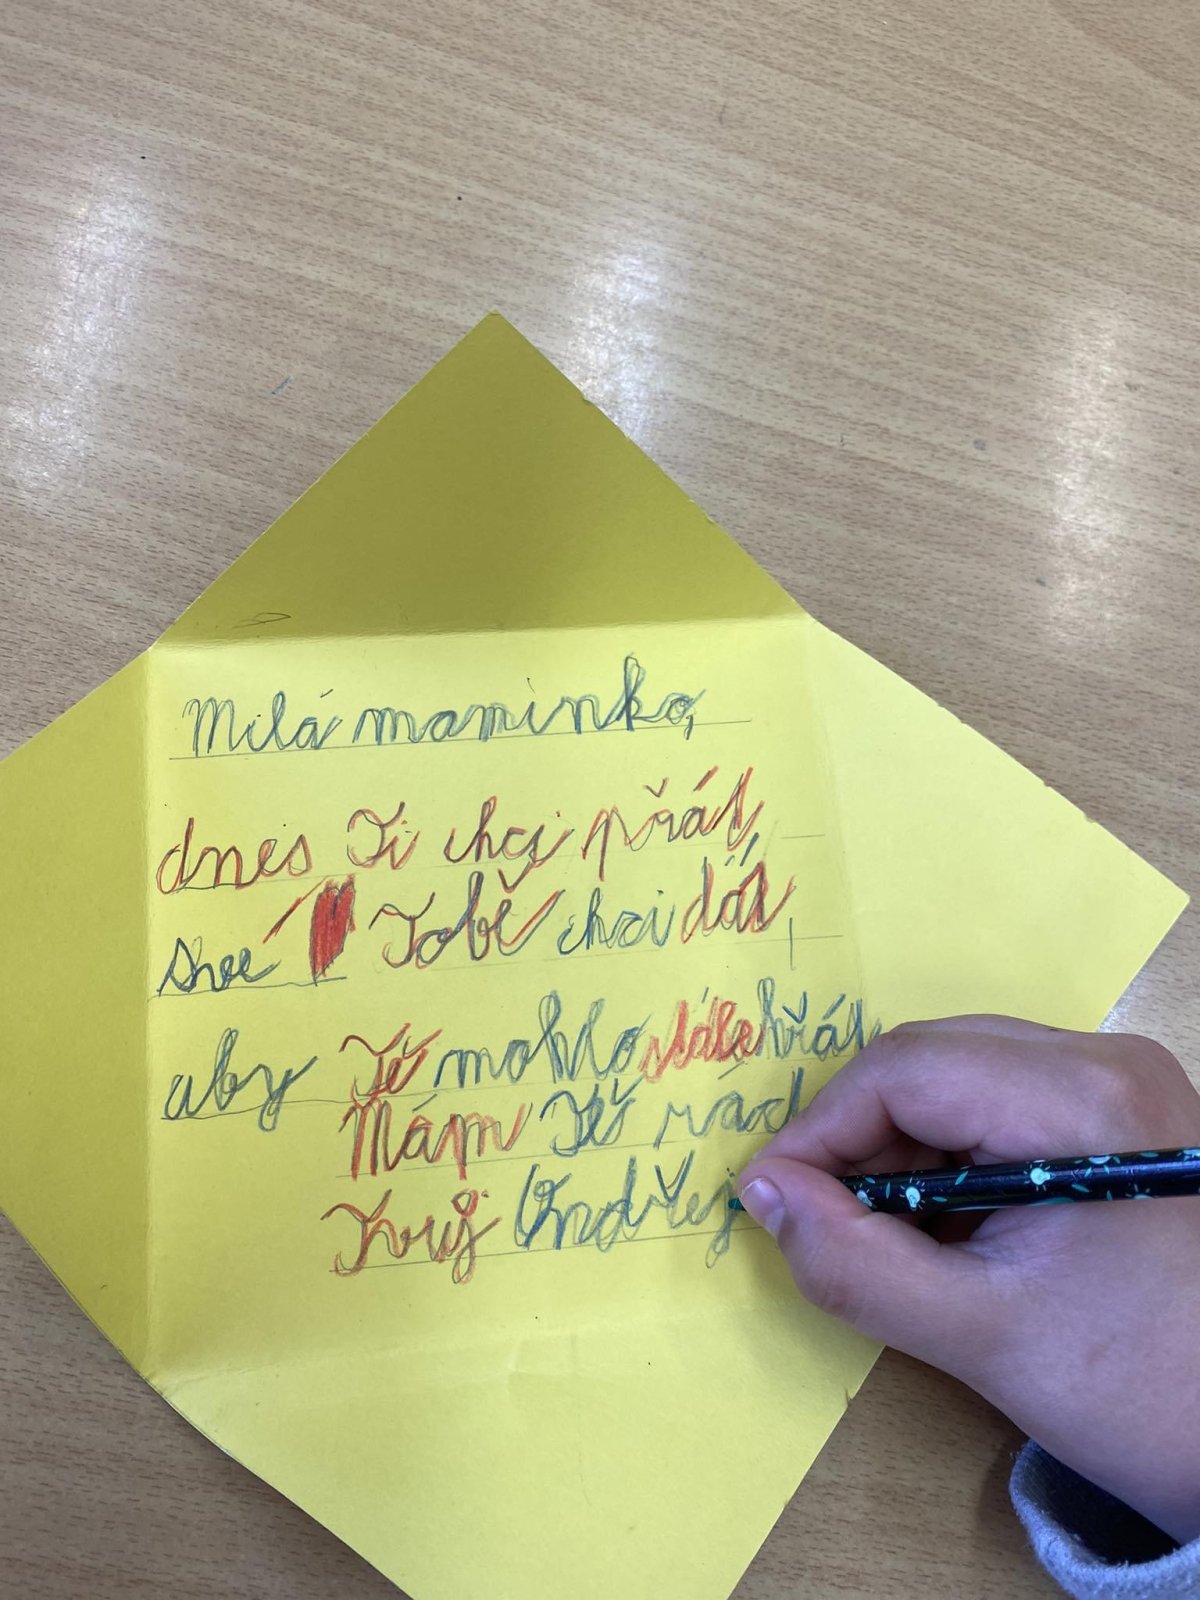 Milá maminko,
dnes Ti chci přát,
své ❤ Tobě chci dát,
aby Tě mohlo stále hřát
Mám Tě rád
Tvůj Ondřej